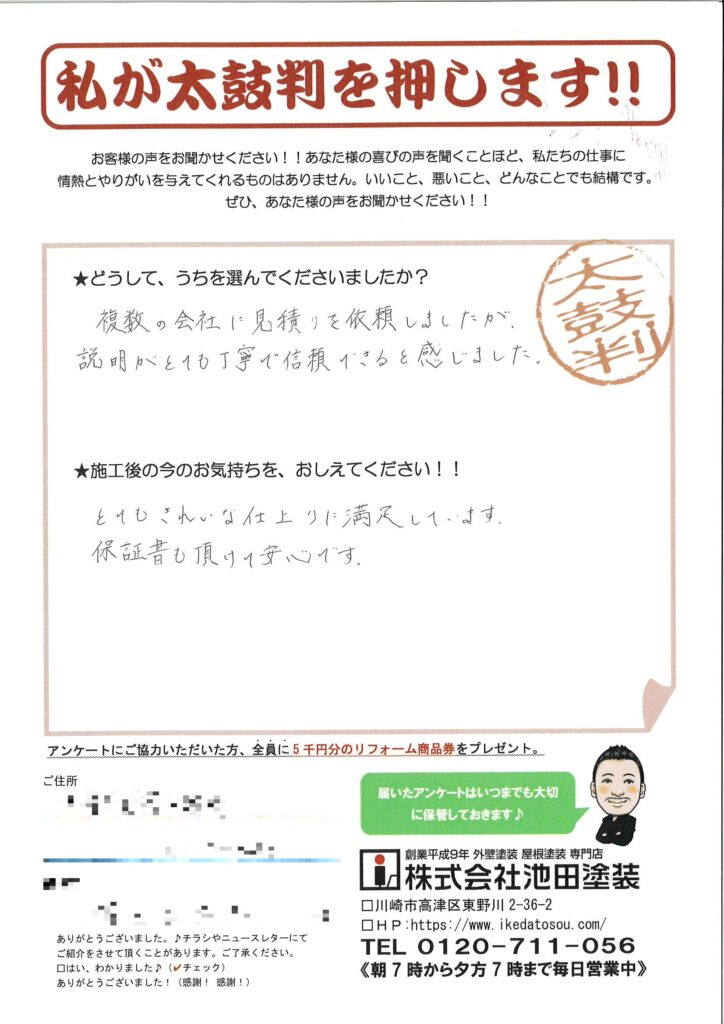 私が太鼓判を押します!!
お客様の声をお聞かせください！！あなた様の喜びの声を聞くことほど、私たちの仕事に
情熱とやりがいを与えてくれるものはありません。いいこと、悪いこと、どんなことでも結構です。
ぜひ、あなた様の声をお聞かせください！！
太鼓判
★どうして、うちを選んでくださいましたか？
複数の会社に見積りを依頼しましたが、
説明がとても丁寧で信頼できると感じました。
★施工後の今のお気持ちを、おしえてください！！
とてもきれいな仕上りに満足しています。
保証書も頂けて安心です。
アンケートにご協力いただいた方、全員に5千円分のリフォーム商品券をプレゼント。
ご住所
届いたアンケートはいつまでも大切
に保管しておきます♪
創業平成9年 外壁塗装 屋根塗装 専門店
株式会社池田塗装
□川崎市高津区東野川2-36-2
□ＨＰ:https://www.ikedatosou.com/
TEL 0120-711-056
《朝7時から夕方7時まで毎日営業中》
ありがとうございました。♪チラシやニュースレターにて
ご紹介をさせて頂くことがあります。ご了承ください。
□はい、わかりました♪（✔チェック）
ありがとうございました！（感謝！感謝！）